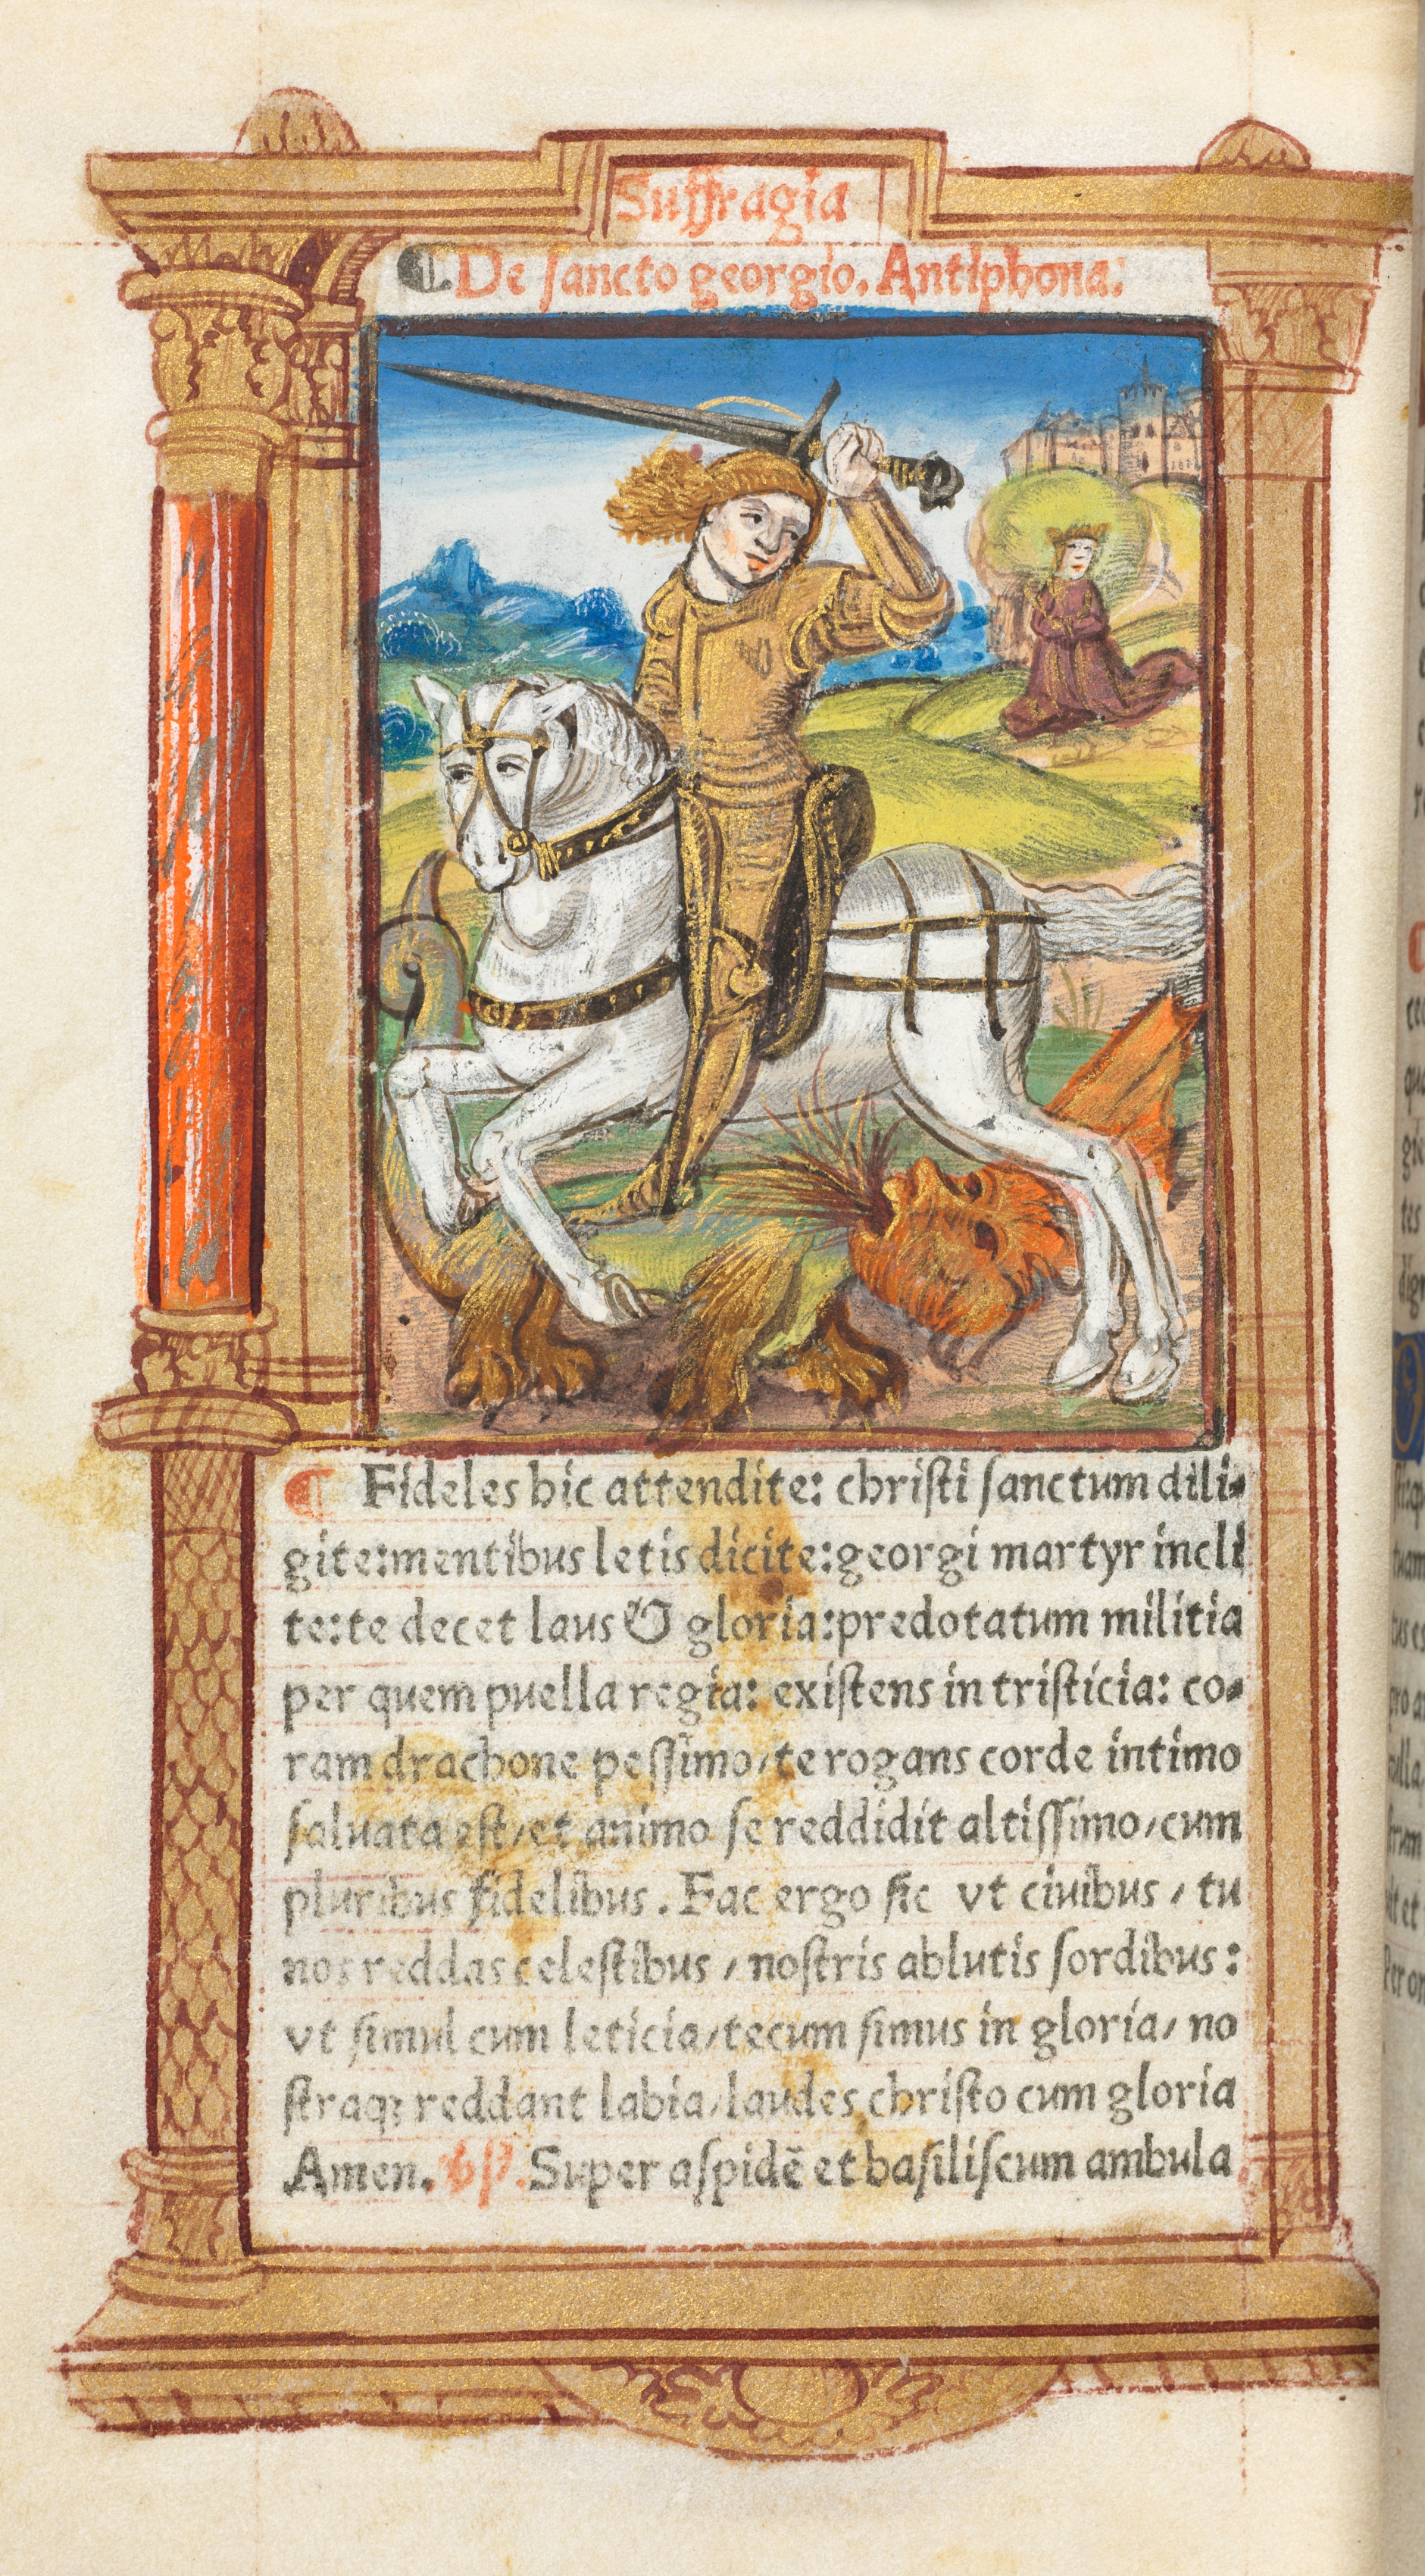 Suffragia
¶ De sancto georgio. Antiphona:
¶ Fideles hic attendite: christi sanctum dili-
gite: mentibus letis dicite: georgi martyr incli
te: te decet laus & gloria: predotatum militia
per quem puella regia: existens in tristicia: co-
ram drachone pessimo/ te rogans corde intimo
saluata est/ et animo se reddidit altissimo/ cum
pluribus fidelibus. Fac ergo sic vt ciuibus / tu
nos reddas celestibus / nostris ablutis sordibus:
vt simul cum leticia/ tecum simus in gloria/ no
straqꝫ reddant labia/ laudes christo cum gloria
Amen. Super aspidē et basiliscum ambula